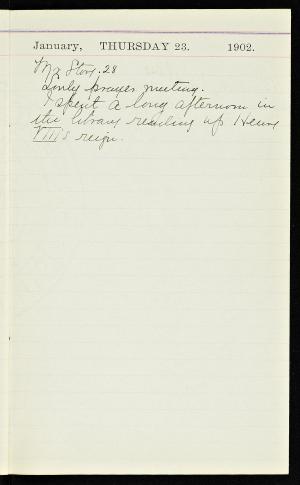 January, THURSDAY 23. 1902.
Mr Stov. 28
Lovly prayer meeting.
I spent a long afternoon in
the library reading up Henry
VIII's reign.